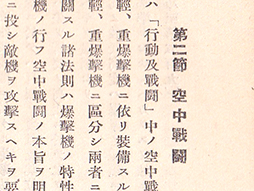 第二節 空中戰鬪
ハ「行動及戰鬪」中ノ空中戰
輕、重爆擊機ニ依リ裝備スル
輕、重爆擊機ニ區分シ兩者ニ
關スル諸法則ハ爆擊機ノ特性
機ノ行フ空中戰鬪ノ本旨ヲ明
ニ投シ敵機ヲ攻擊スヘキヲ要